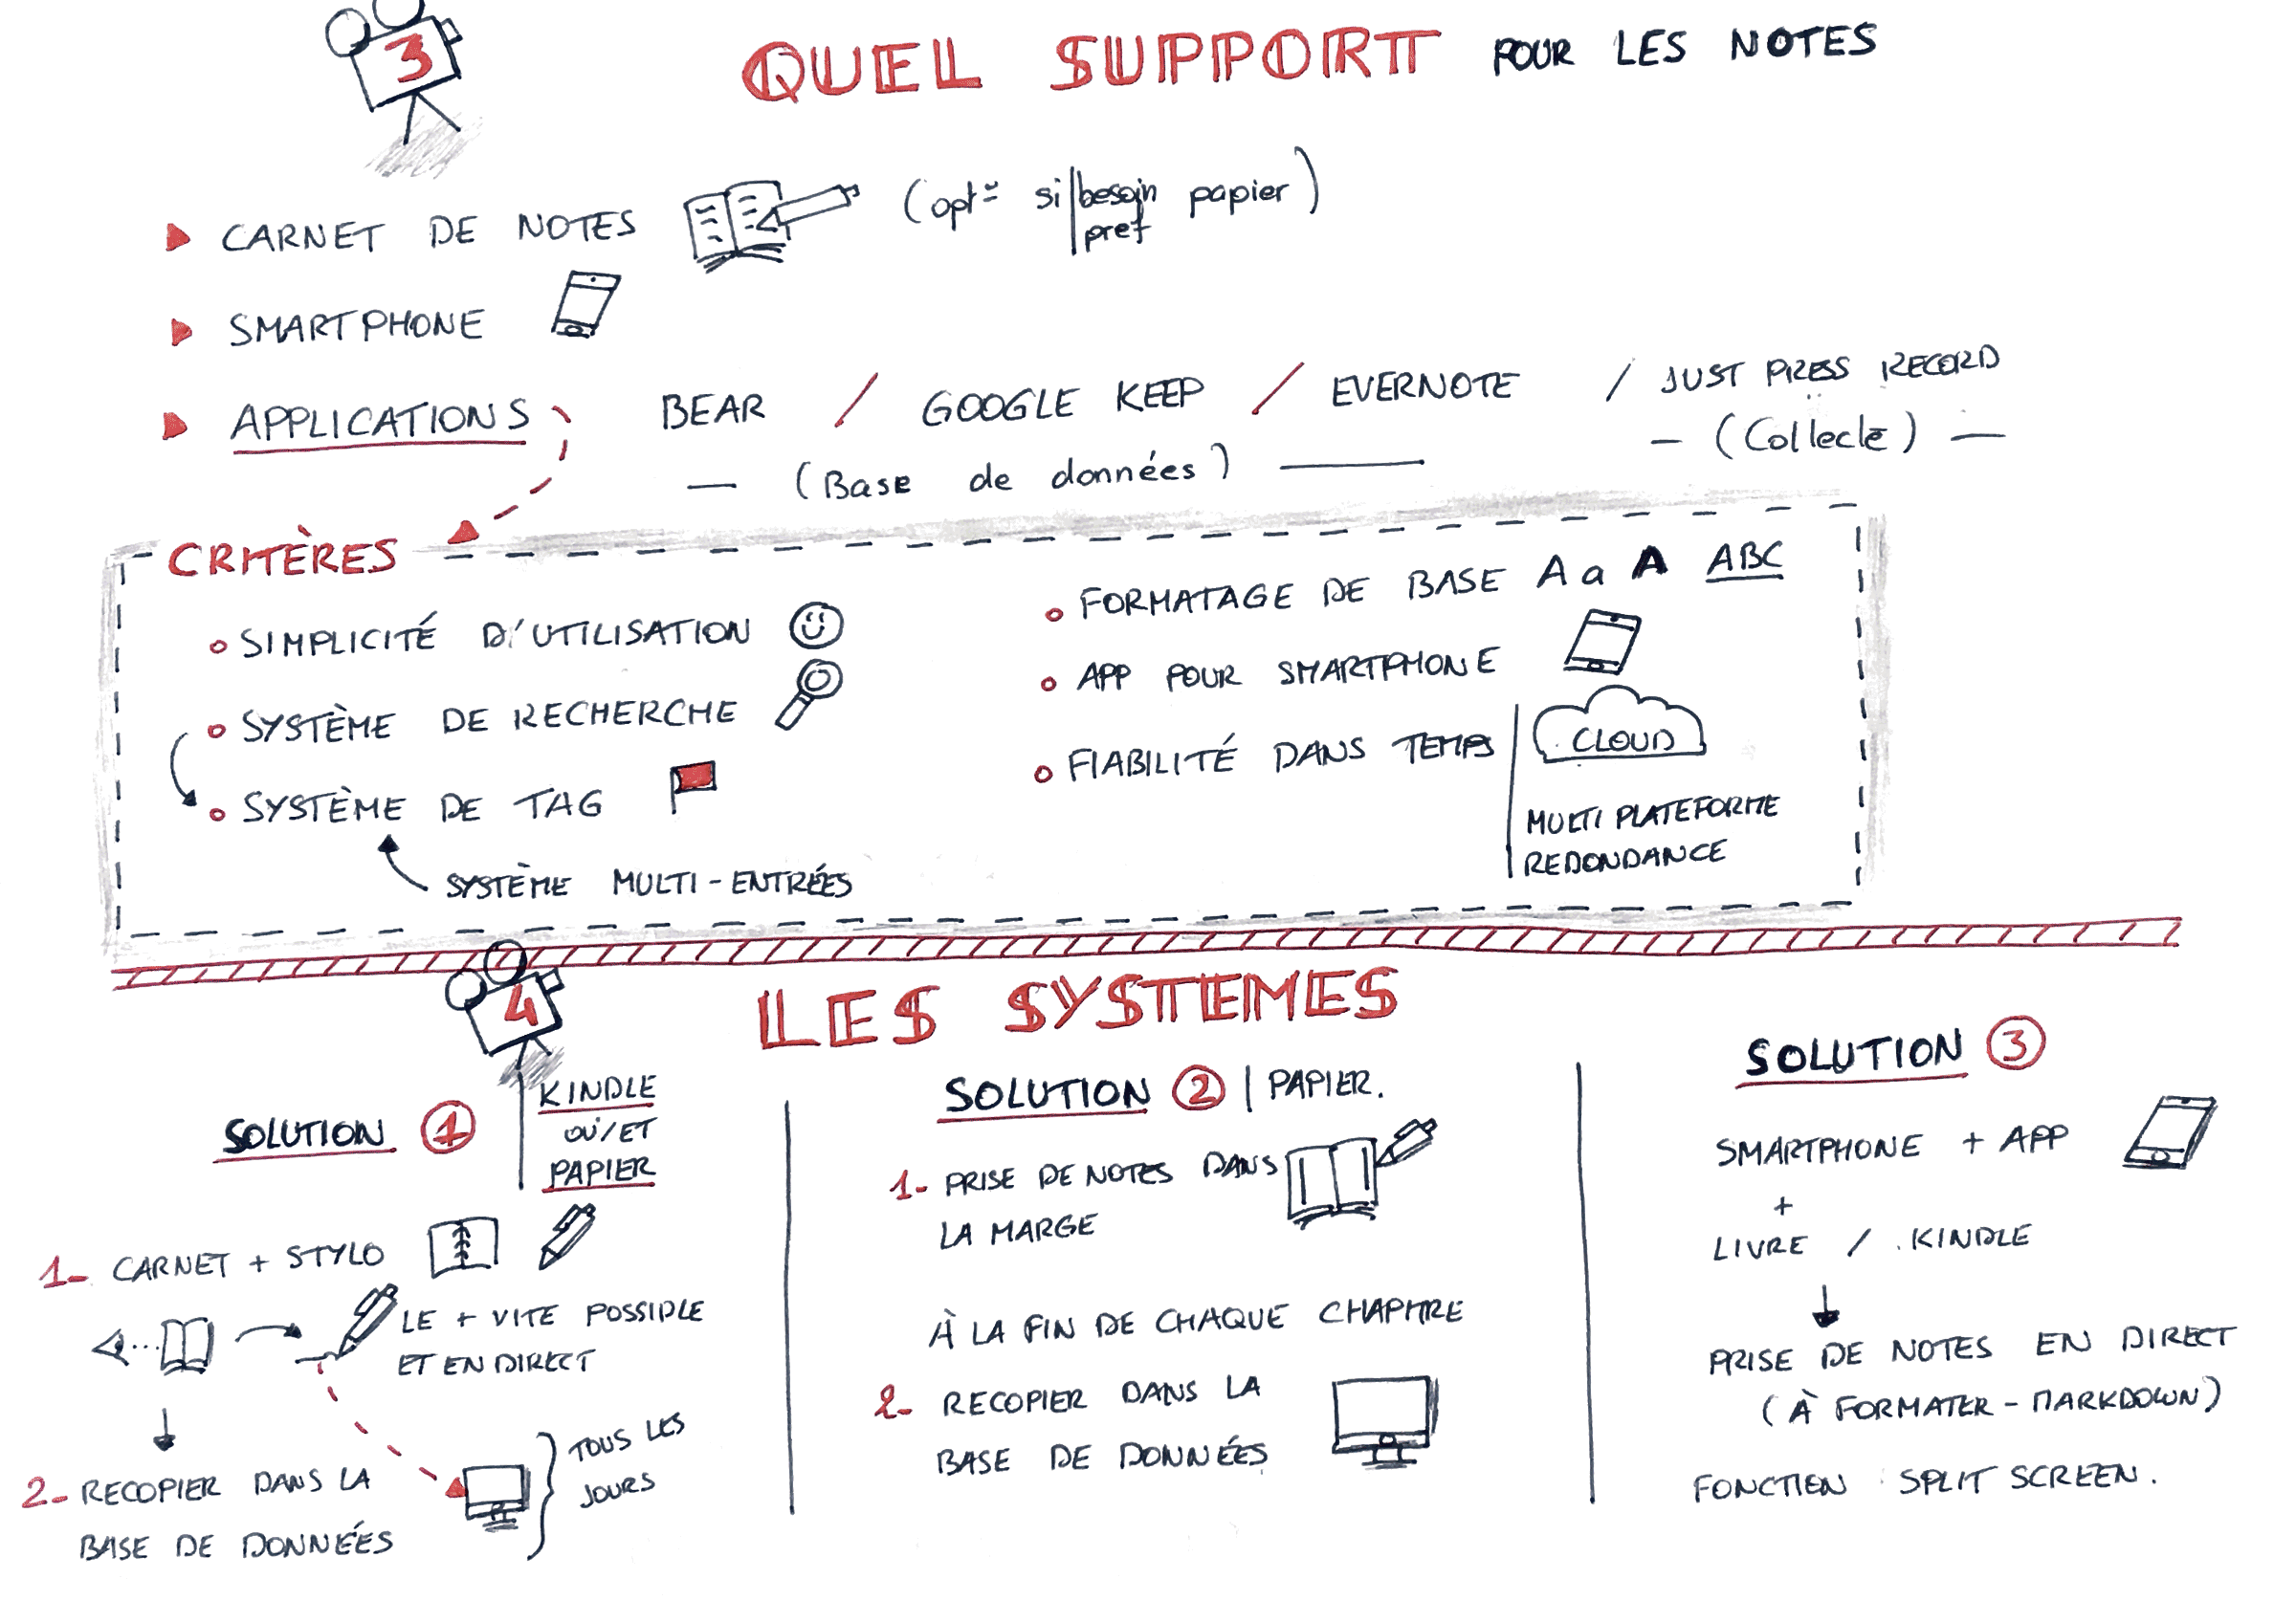 3
QUEL SUPPORT POUR LES NOTES
CARNET DE NOTES (opt= si besoin papier)
pref
SMARTPHONE
APPLICATIONS BEAR / GOOGLE KEEP / EVERNOTE / JUST PRESS RECORD
— (Base de données) — — (Collecte) —
CRITÈRES
SIMPLICITÉ D'UTILISATION
SYSTÈME DE RECHERCHE
SYSTÈME DE TAG
SYSTÈME MULTI-ENTRÉES
FORMATAGE DE BASE A a A ABC
APP POUR SMARTPHONE
FIABILITÉ DANS TEMPS
CLOUD
MULTI PLATEFORME
REDONDANCE
4
LES SYSTEMES
SOLUTION 1
KINDLE
OU/ET
PAPIER
1- CARNET + STYLO
LE + VITE POSSIBLE
ET EN DIRECT
2- RECOPIER DANS LA
BASE DE DONNÉES
TOUS LES
JOURS
SOLUTION 2 | PAPIER.
1- PRISE DE NOTES DANS
LA MARGE
À LA FIN DE CHAQUE CHAPITRE
2- RECOPIER DANS LA
BASE DE DONNÉES
SOLUTION 3
SMARTPHONE + APP
+
LIVRE / KINDLE
PRISE DE NOTES EN DIRECT
(À FORMATER - MARKDOWN)
FONCTION SPLIT SCREEN.